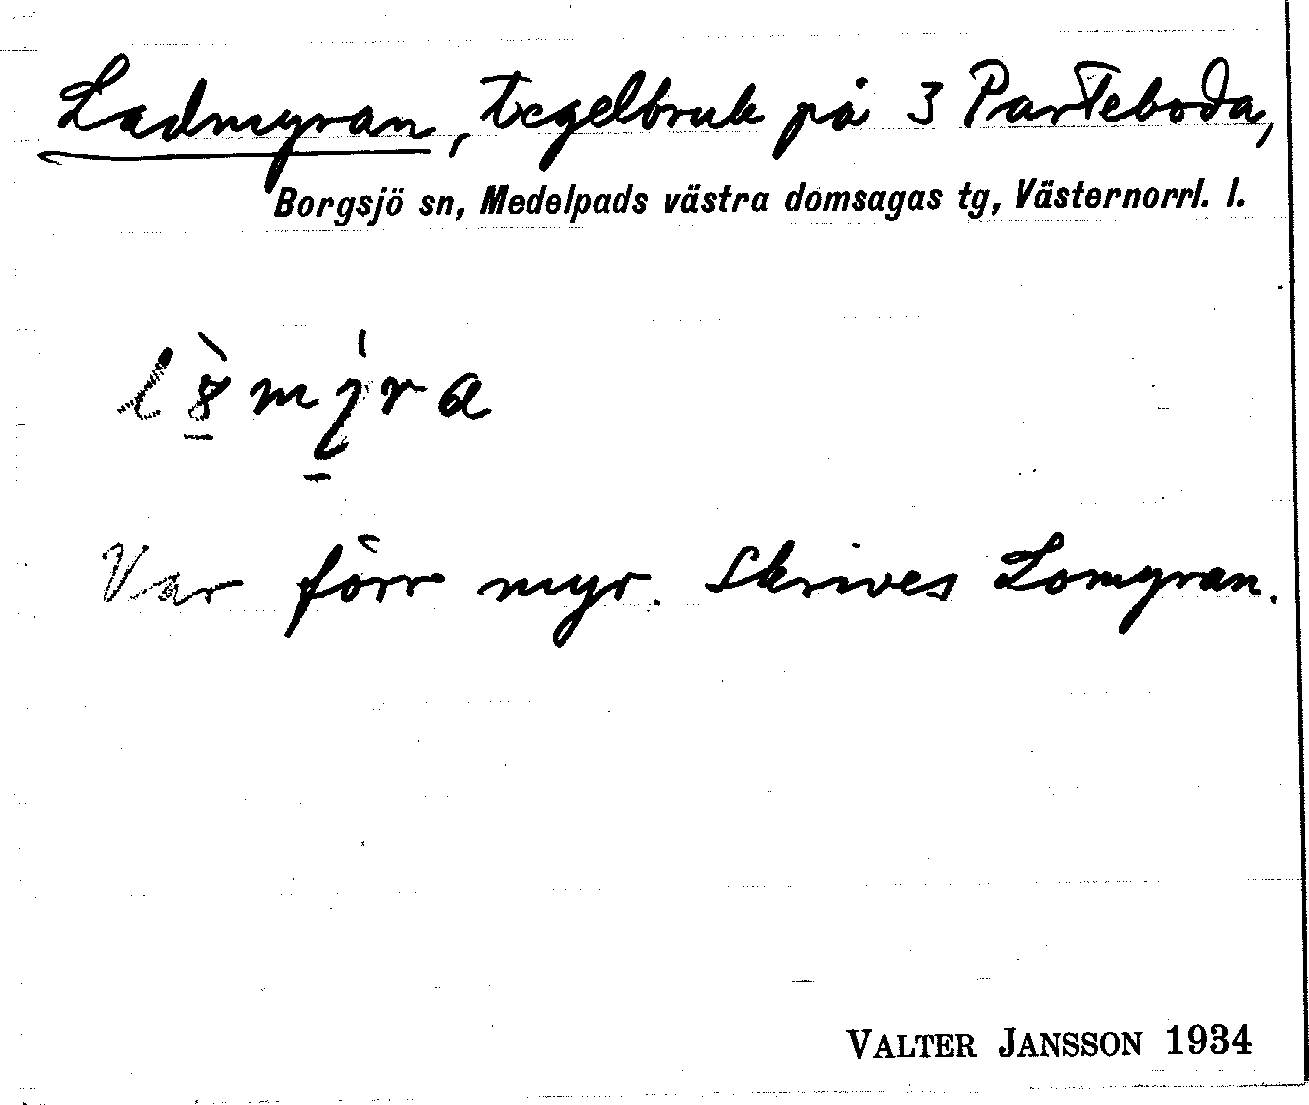 Ladmyran, tegelbruk på 3 Parteboda,
Borgsjö sn, Medelpads västra domsagas tg, Västernorrl. l.
Var förr myr. Skrives Lomyran.
VALTER JANSSON 1934